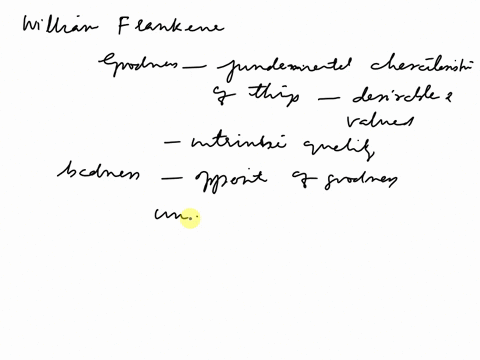 Willian Flankene
Goodness — fundemental cherecteristi
of things — desirable &
values
— intrinsic quality
badness — opposit of goodness
un.